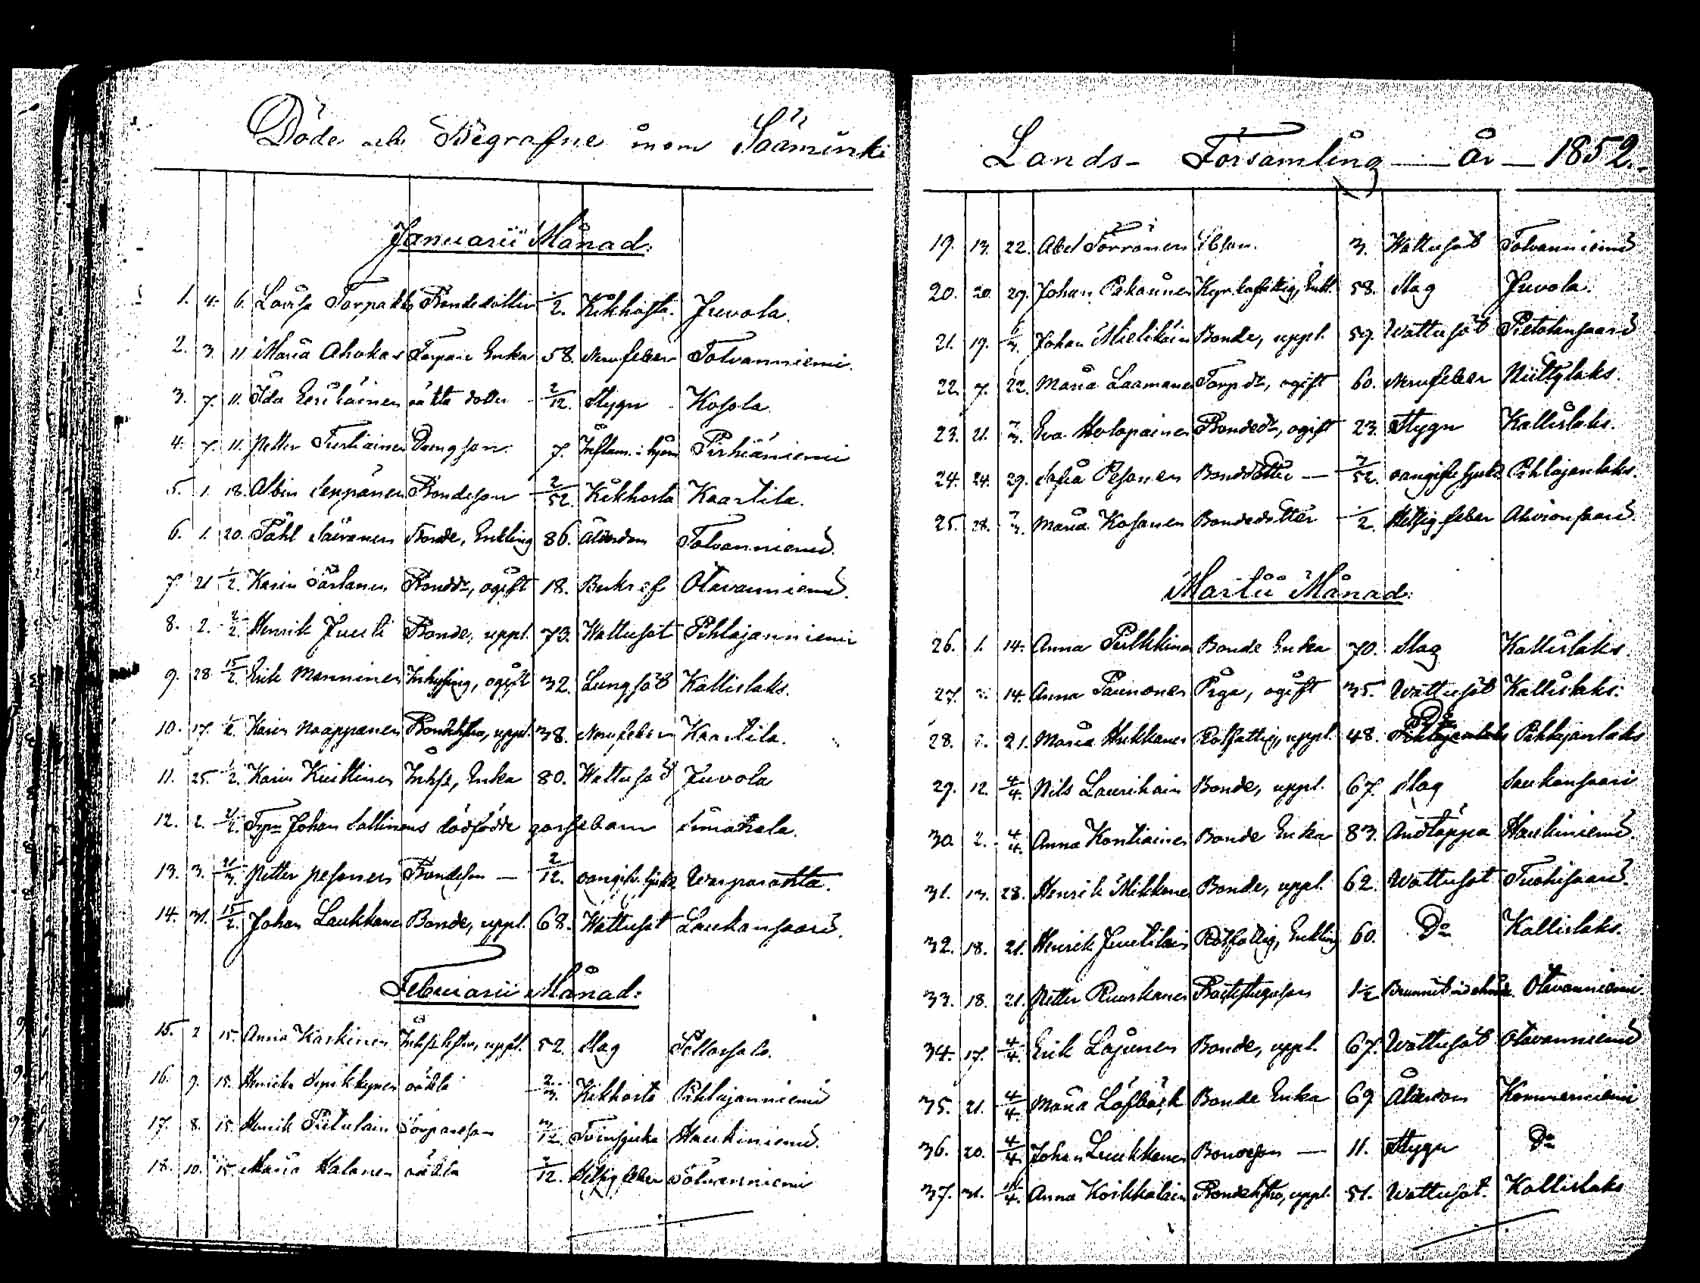 Döde och Begrafne inom Sääminki
Januarii Månad:
1. 4. 6. Lovisa Torpakka Bondedotter 1/2. Kikhosta. Juvola.
2. 3. 11 Maria Ahokas Torpare Enka 58. Nervfeber Tolvanniemi.
3. 7. 11. Ida oäkta dotter 2/12. Stygn Kosola.
4. 7. 11. Petter Turtiainen Drengson. 7. Inflam. i hjern Pirhiäniemi
5. 1. 18. Albin Seppänen Bondeson 2/52 Kikhosta Kaartila.
6. 1. 20. Påhl Säivänen Bonde, Enkling 86. Ålderdom Tolvanniemi.
7. 21 1/2. Karin Bondedr, ogift 18. Bukref Otavanniemi.
8. 2. 2/2. Henrik Juuti Bonde, uppl. 73. Wattusot Pihlajanniemi
9. 28 15/2. Erik Manninen Inhysing, ogift 32. Lungsot Kallislaks.
10. 17. 1/2. Karin Naappanen uppl. 38. Nervfeber Kaartila.
11. 25 1/2. Karin Kiettinen Inhs, Enka 80. Wattusot Juvola
12. 2. Johan Sallinens dödfödde gossebarn Simonsala.
13. 3. Petter Pesonen Bondeson — 2/12. oangifv. sjukd. Warparanta.
14. 31. 15/2. Johan Laukkanen Bonde, uppl. 68. Wattusot Laukansaari.
Februarii Månad:
15. 2 15. Anna Kaskinen uppl. 52. Slag Pellossalo.
16. 9. 15. Henrika oäkta Kikhosta Pihlajanniemi
17. 8. 15. Henrik Pietulain Torpareson 3/12. Tvinsjuka Haukiniemi.
18. 10. 15. Maria Halonen oäkta 2/12. Hetsig feber Tolvanniemi
Lands- Församling — år — 1852.
19. 13. 22. Abel Törrönen 3. Wattusot Tolvanniemi
20. 20. 29. Johan Pakarinen Kyrkofattig, Enkl. 58. Slag Juvola.
21. 19. Johan Mielikäin Bonde, uppl. 59. Wattusot Pietolansaari
22. 7. 22. Maria Laamanen Torpdr, ogift 60. Nervfeber Niittylaks.
23. 21. 7/3. Eva Holopainen Bondedr, ogift 23. Stygn Kallislaks.
24. 24. 29. Sofia Pesonen Bondedotter — 2/52. oangifv. sjukd. Pihlajanlaks.
25. 28. 7/3. Maria Kosonen Bondedotter 1/2. Hetsig feber Ahvonsaari.
Martii Månad:
26. 1. 14. Anna Pulkkinen Bonde Enka 70. Slag Kallislaks.
27. 14. Anna Paunonen Piga, ogift 35. Wattusot Kallislaks.
28. 21. Maria Hukkanen Rotfattig, uppl. 48. Do Pihlajanlaks
29. 12. 4/4. Nils Laurikain Bonde, uppl. 67. Slag Laukansaari
30. 2. 4/4. Anna Kontiainen Bonde Enka 83. Andtäppa Haukiniemi
31. 13. 28. Henrik Mikkone Bonde, uppl. 62. Wattusot Tuohisaari.
32. 18. 21. Henrik Juutilain Rotfattig, Enkling 60. Do Kallislaks.
33. 18. 21. Petter Ruuskanen 1 1/2 Otavanniemi
34. 17. 4/4. Erik Lajunen Bonde, uppl. 67. Wattusot Otavanniemi
35. 21. 4/4. Maria Löfbäck Bonde Enka 69 Ålderdom Kommerniemi
36. 20. 4/4. Johan Luukkanen Bondeson — 11. Stygn Do
37. 31. 11/4. Anna Koikkalain uppl. 51. Wattusot. Kallislaks